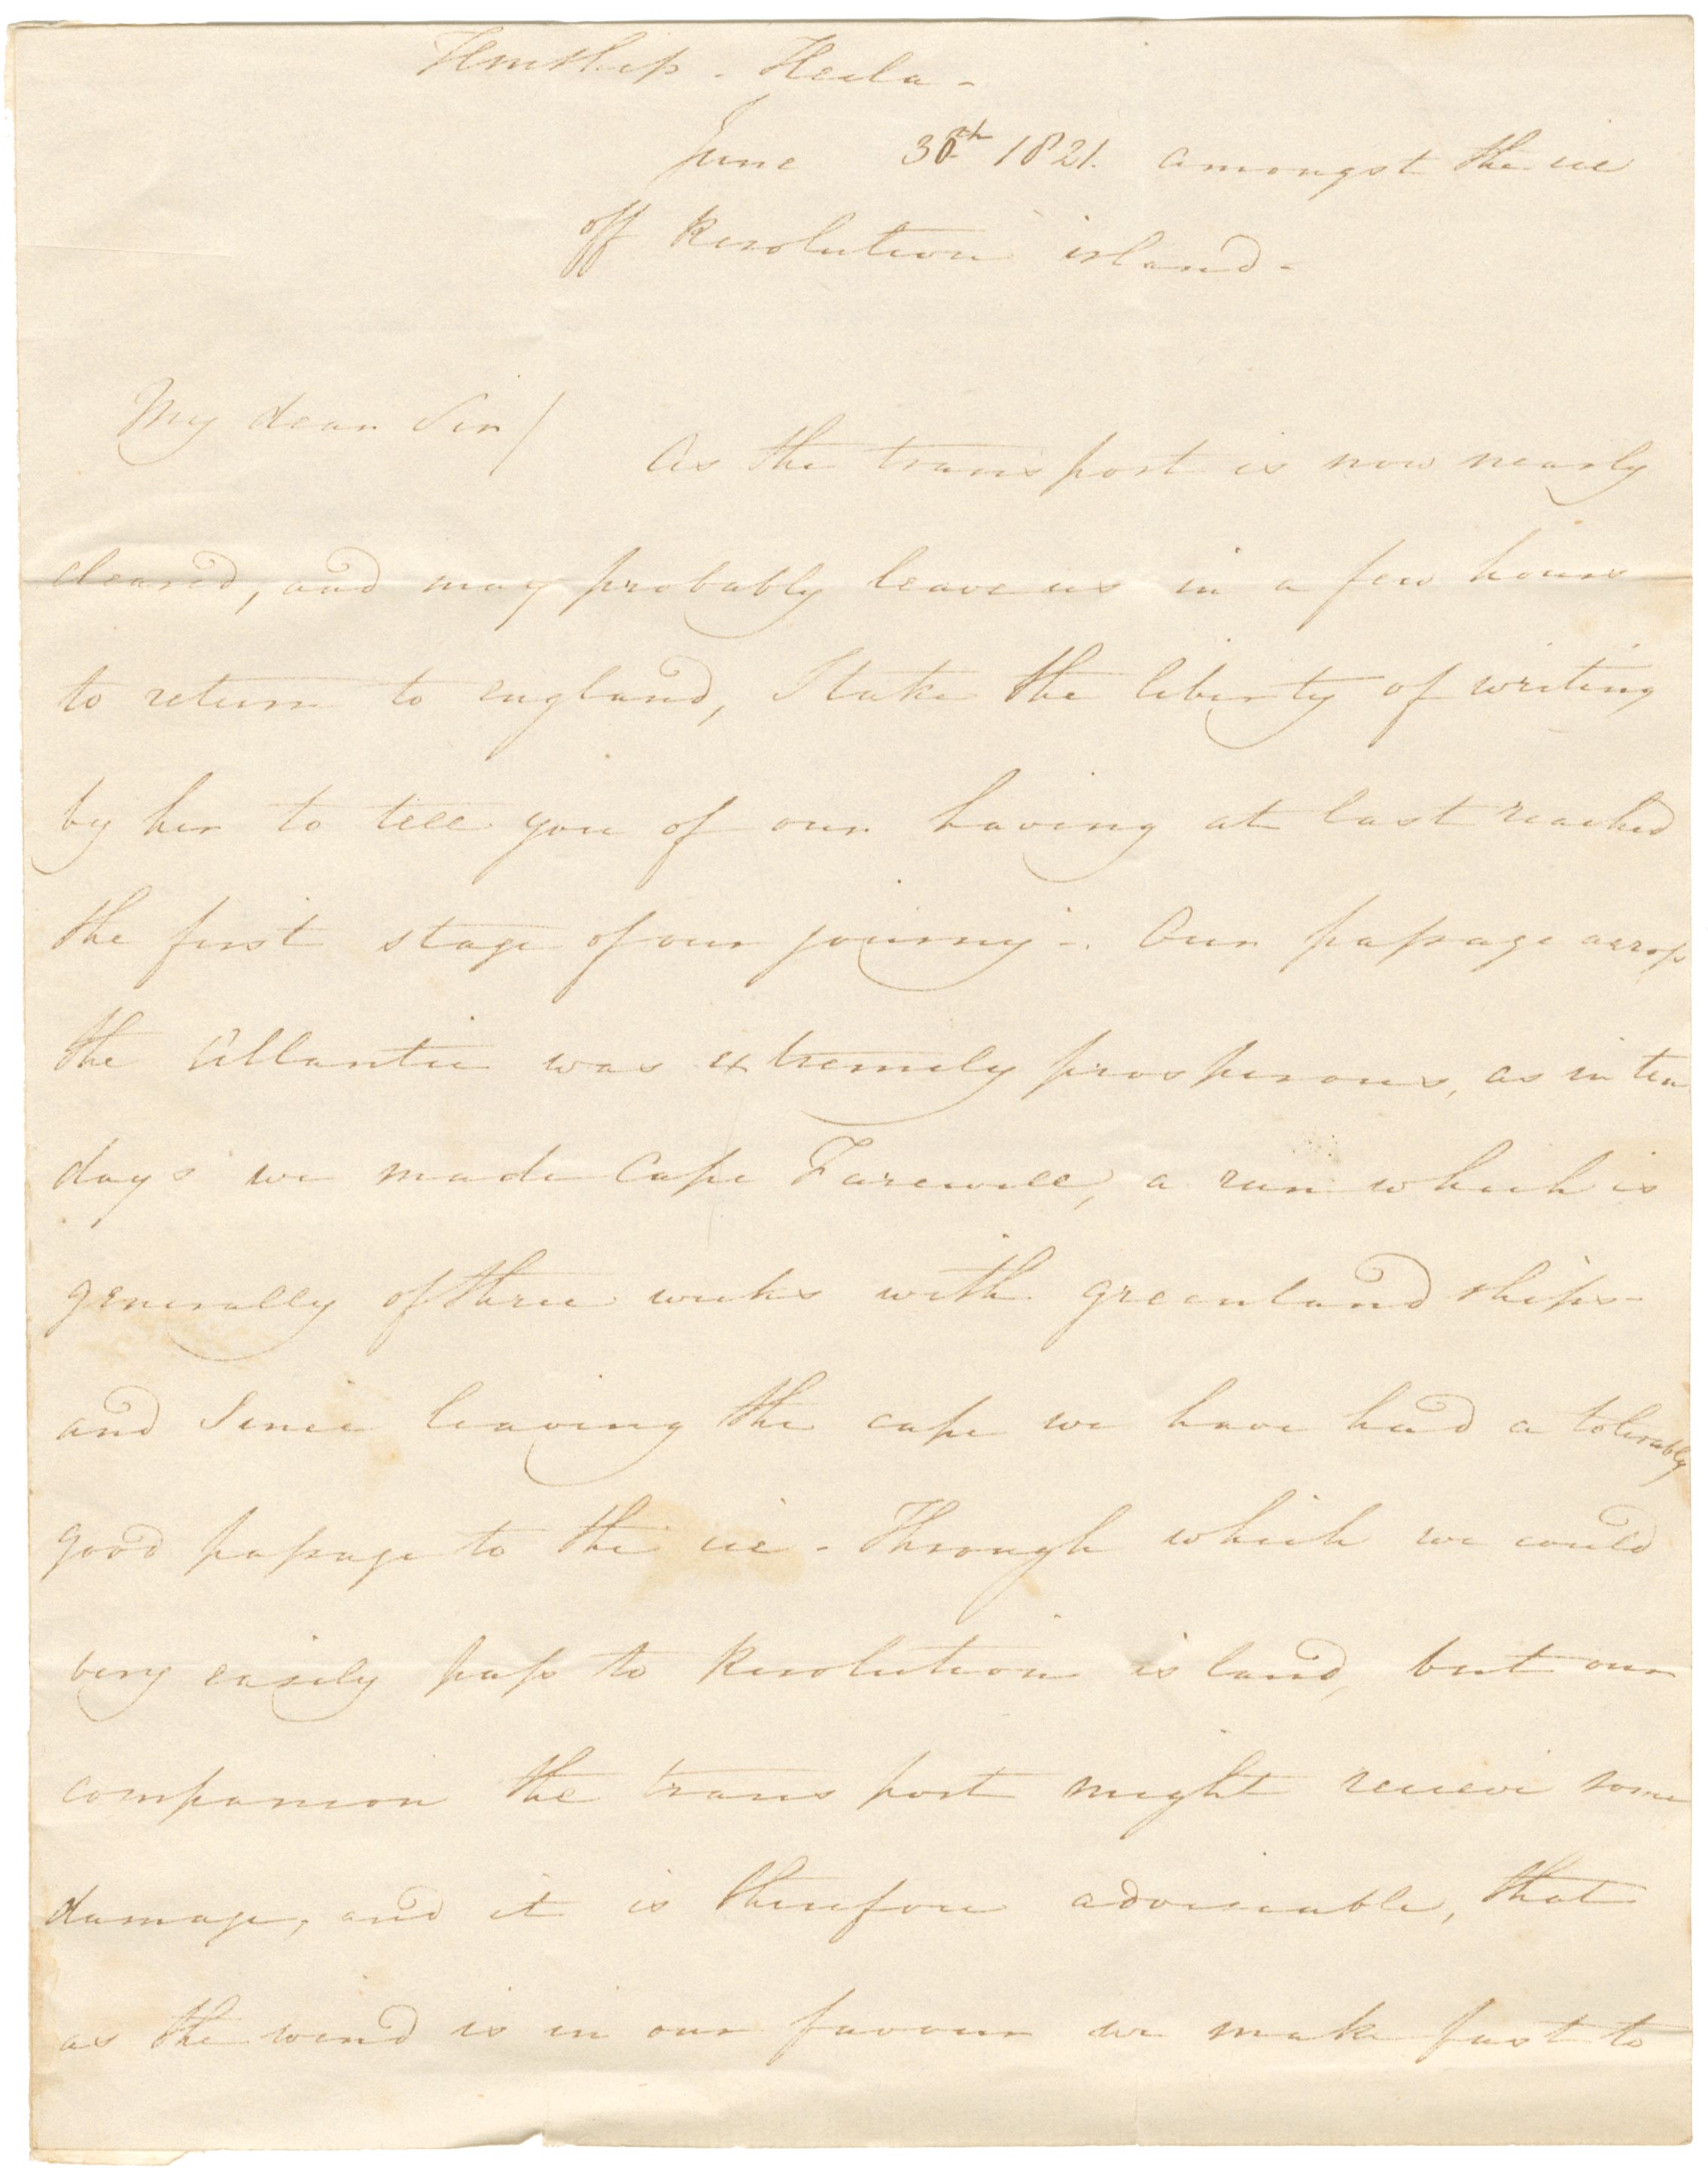 HM Ship - Hecla -
June 30th 1821. amongst the ice
off Resolution island -
My dear Sir/
As the transport is now nearly
cleared, and may probably leave us in a few hours
to return to england, I take the liberty of writing
by her to tell you of our having at last reached
the first stage of our journey -. Our passage across
the Atlantic was extremely prosperous, as in ten
days we made Cape Farewell, a run which is
generally of three weeks with greenland ships -
and Since leaving the cape we have had a tolerably
good passage to the ice - Through which we could
very easily pass to Resolution island, but our
companion the transport might receive some
damage, and it is therefore adviseable, that
as the wind is in our favour we make fast to